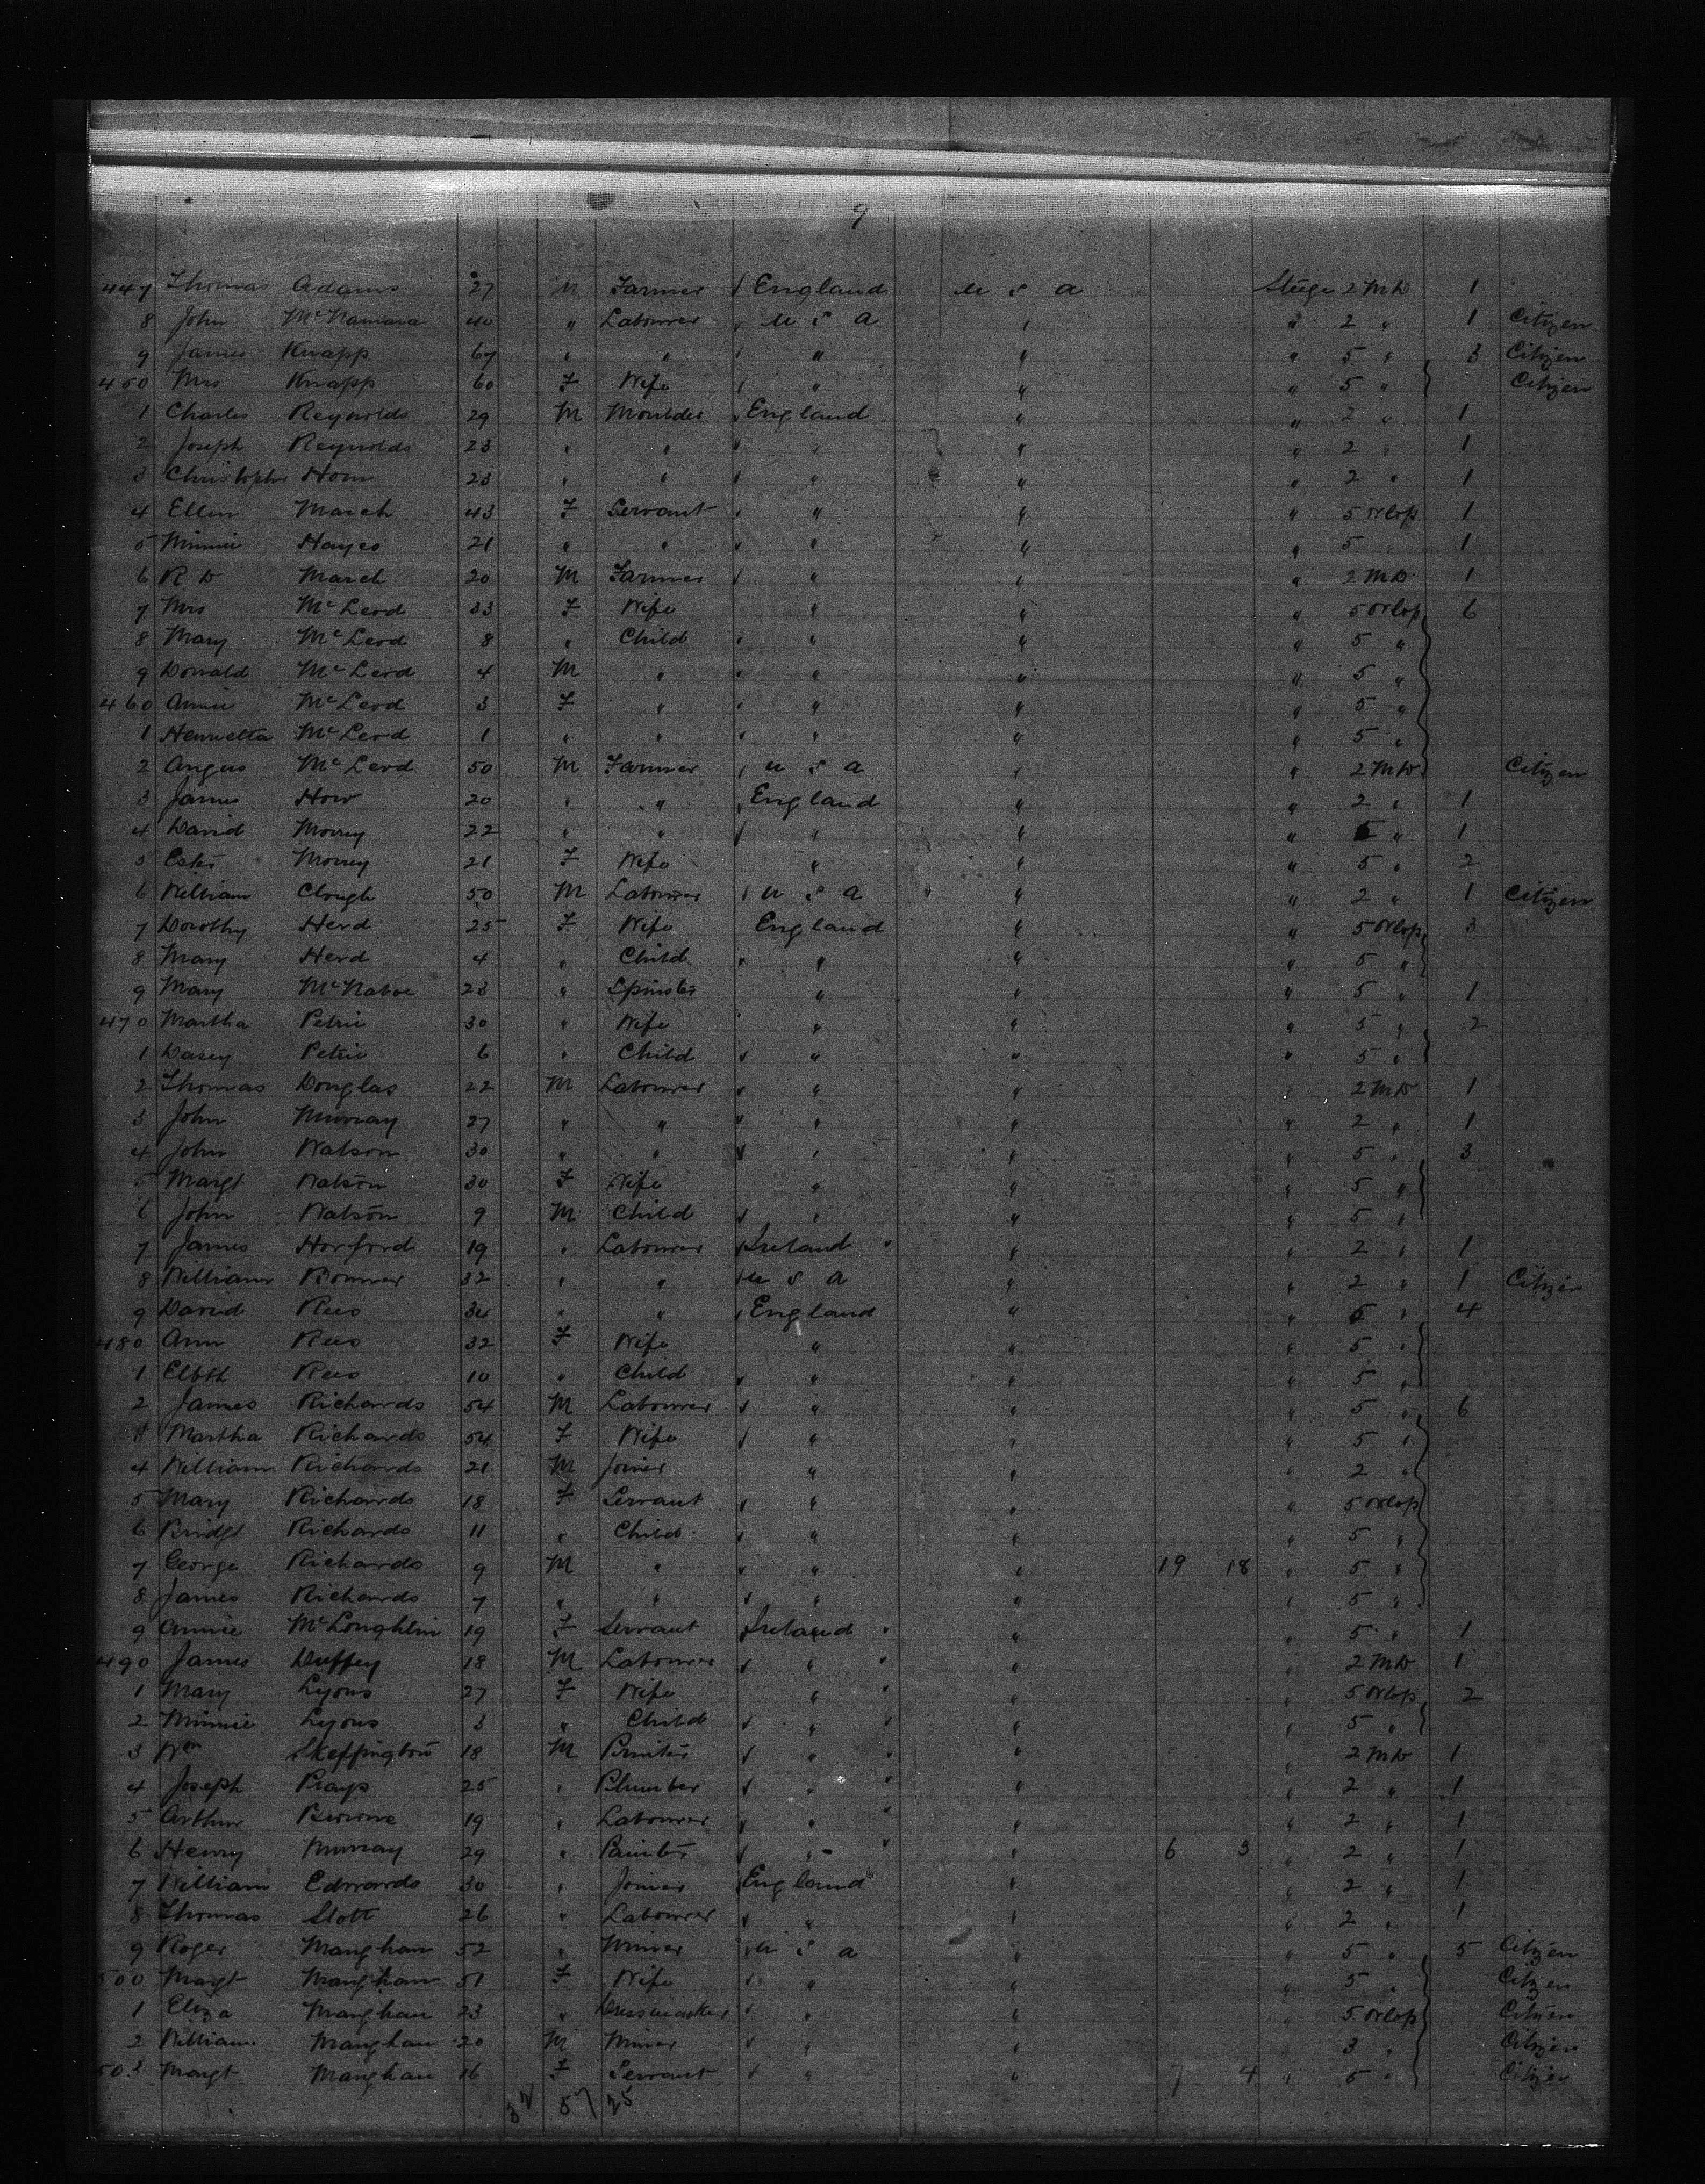 9
447 Thomas Adams 27 M Farmer England U S A Stege 2 MD 1
8 John McNamara 40 " Labourer U S A " " 2 " 1 Citizen
9 James Knapp 67 " " " " " 5 " 3 Citizen
450 Mrs Knapp 60 F Wife " " " 5 " Citizen
1 Charles Reynolds 29 M Moulder England " " 2 " 1
2 Joseph Reynolds 23 " " " " " 2 " 1
3 Christopher 23 " " " " " 2 " 1
4 Ellen March 43 F Servant " " " 5 Orlop 1
5 Minnie Hayes 21 " " " " " 5 " 1
6 R D March 20 M Farmer " " " 2 MD 1
7 Mrs McLeod 33 F Wife " " " 5 Orlop 6
8 Mary McLeod 8 " Child " " " 5 "
9 Donald McLeod 4 M " " " " 5 "
460 Annie McLeod 3 F " " " " 5 "
1 Henrietta McLeod 1 " " " " " 5 "
2 Angus McLeod 50 M Farmer U S A " " 2 MD Citizen
3 James How 20 " " England " " 2 " 1
4 David Morrey 22 " " " " " 5 " 1
5 Morrey 21 F Wife " " " 5 " 2
6 William Clough 50 M Labourer U S A " " 2 " 1 Citizen
7 Dorothy Herd 25 F Wife England " " 5 Orlop 3
8 Mary Herd 4 " Child " " " 5 "
9 Mary McNaboe 23 " Spinster " " " 5 " 1
470 Martha Petrie 30 " Wife " " " 5 " 2
1 Dasey Petrie 6 " Child " " " 5 "
2 Thomas Douglas 22 M Labourer " " " 2 MD 1
3 John Murray 27 " " " " " 2 " 1
4 John Watson 30 " " " " " 5 " 3
5 Margt Watson 30 F Wife " " " 5 "
6 John Watson 9 M Child " " " 5 "
7 James Horford 19 " Labourer Ireland " " 2 " 1
8 William Bonner 32 " " U S A " " 2 " 1 Citizen
9 David Rees 34 " " England " " 5 " 4
480 Ann Rees 32 F Wife " " " 5 "
1 Elbth Rees 10 " Child " " " 5 "
2 James Richards 54 M Labourer " " " 5 " 6
3 Martha Richards 54 F Wife " " " 5 "
4 William Richards 21 M Joiner " " " 2 "
5 Mary Richards 18 F Servant " " " 5 Orlop
6 Bridgt Richards 11 " Child " " " 5 "
7 George Richards 9 M " " " 19 18 " 5 "
8 James Richards 7 " " " " " 5 "
9 Annie McLoughlin 19 F Servant Ireland " " 5 " 1
490 James Duffey 18 M Labourer " " " 2 MD 1
1 Mary Lyons 27 F Wife " " " 5 Orlop 2
2 Minnie Lyons 3 " Child " " " 5 "
3 Wm Skeffington 18 M Printer " " " 2 MD 1
4 Joseph Prays 25 " Plumber " " " 2 " 1
5 Arthur Browne 19 " Labourer " " " 2 " 1
6 Henry Murray 29 " Painter " " 6 3 " 2 " 1
7 William Edwards 30 " Joiner England " " 2 " 1
8 Thomas Slott 26 " Labourer " " " 2 " 1
9 Roger Manghan 52 " Miner U S A " " 5 " 5 Citizen
500 Margt Manghan 51 F Wife " " " 5 " Citizen
1 Eliza Manghan 23 " Dressmaker " " " 5 Orlop Citizen
2 William Manghan 20 M Miner " " " 3 " Citizen
503 Margt Manghan 16 F Servant " " 7 4 " 5 " Citizen
32 57 25